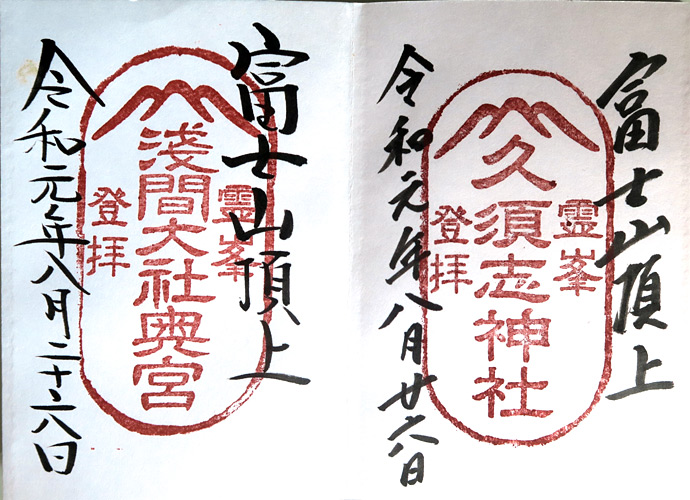 富士山頂上
霊峯
久須志神社
登拝
令和元年八月廿六日
富士山頂上
霊峯
淺間大社奥宮
登拝
令和元年八月二十六日